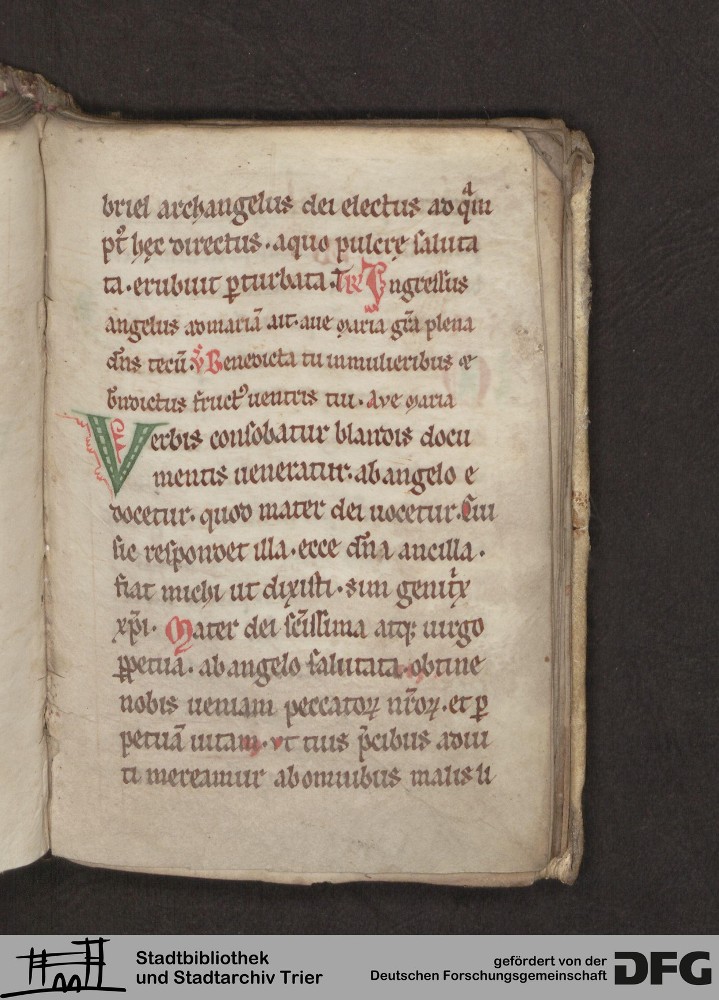 briel archangelus dei electus ad q̄m
pt᷒ hęc directus. a quo pulcrę saluta
ta. erubuit ꝑturbata. Tr̄ Ingressus
angelus ad mariā ait. aue maria gr̄a plena
dn̄s tecū. V̄ Benedicta tu in mulieribus et
bn̄dictus fruct᷒ uentris tui. Aue maria
Verbis consobatur blandis docu
mentis ueneratur. ab angelo e
docetur. quod mater dei uocetur.
sic respondet illa. ecce dn̄a ancilla.
fiat michi ut dixisti. sim genitⁱx
xp̄i. Mater dei sc̄issima atq; uirgo
ꝑpetua. ab angelo salutata. obtine
nobis ueniam peccatoꝝ nr̄oꝝ. et ꝑ
petuā uitam. vt tuis p̄cibus adiu
ti mereamur ab omnibus malis li
Stadtbibliothek
und Stadtarchiv Trier
gefördert von der
Deutschen Forschungsgemeinschaft
DFG